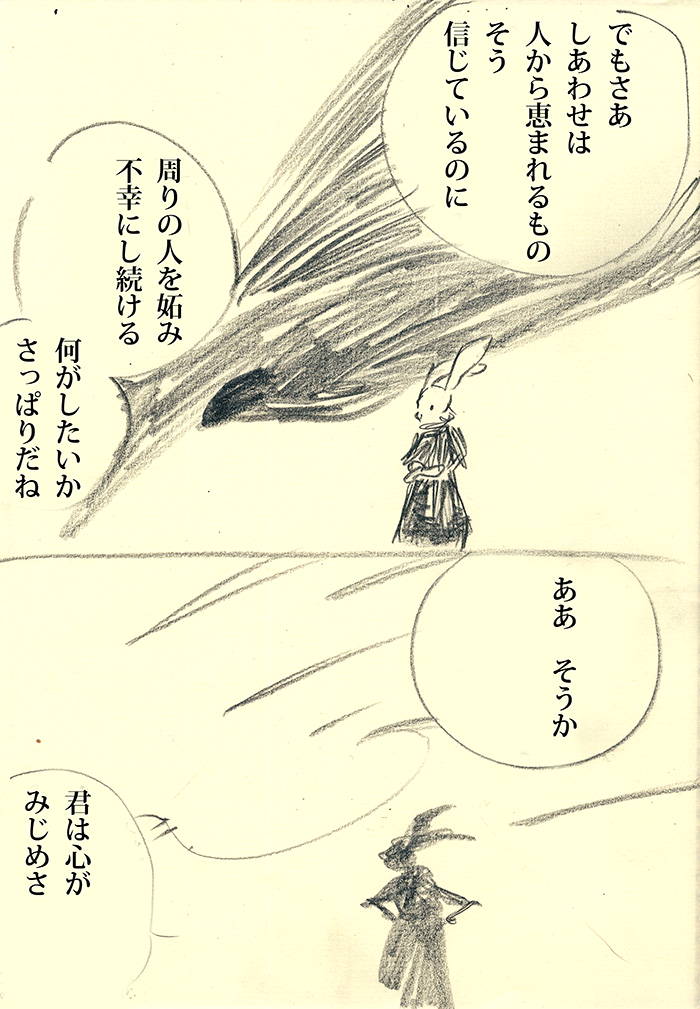 でもさあ
しあわせは
人から恵まれるもの
そう
信じているのに
周りの人を妬み
不幸にし続ける
何がしたいか
さっぱりだね
ああ　そうか
君は心が
みじめさ